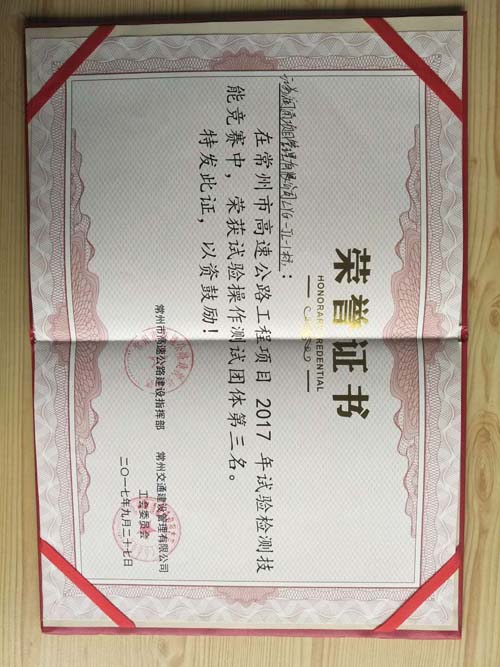 荣誉证书
HONORARY CREDENTIAL
项目管理有限公司LYG-JL-1标:
在常州市高速公路工程项目 2017 年试验检测技
能竞赛中，荣获试验操作测试团体第三名。
特发此证，以资鼓励！
常州市高速公路建设指挥部
常州交通建设管理有限公司
工会委员会
二〇一七年九月二十七日